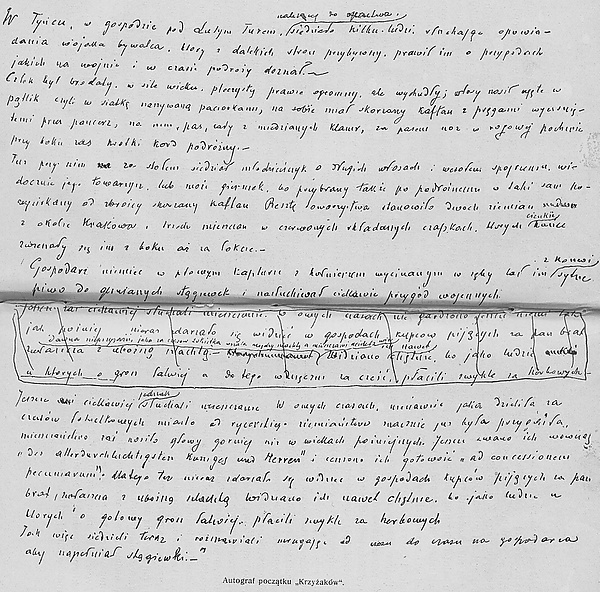 należącej do opactwa,
W Tyńcu, w gospodzie pod Lutym Turem, siedziało kilku ludzi, słuchając opowia-
dania wojaka bywalca, który z dalekich stron przybywszy, prawił im o przygodach
jakich na wojnie i w czasie podróży doznał. —
Człek był brodaty, w sile wieku, pleczysty prawie ogromny, ale wychudły; włosy nosił ujęte w
pątlik czyli w siatkę naszywaną paciorkami, na sobie miał skórzany kaftan z pręgami wyciśnię-
temi przez pancerz, na nim pas, cały z miedzianych klamr, za pasem nóż w rogowej pochwie
przy boku zaś krótki kord podróżny. —
Tuż przy nim za stołem siedział młodzieńczyk o długich włosach i wesołem spojrzeniu, wi-
docznie jego towarzysz, lub może giermek, bo przybrany także po podróżnemu w taki sam po-
wyciskany od zbroicy skórzany kaftan. Resztę towarzystwa stanowiło dwóch ziemian
z okolic Krakowa i trzech mieszczan w czerwonych składanych czapkach, których cienkie końce
zwieszały się im z boku aż na łokcie. —
Gospodarz niemiec w płowym kapturze z kołnierzem wycinanym w zęby lał im z konwi sytne
piwo do glinianych stągiewek i nasłuchiwał ciekawie przygód wojennych.
jeszcze zaś ciekawiej słuchali mieszczanie. W owych czasach
jak później nieraz zdarzało się widzieć w gospodach kupców pijących za pan brat
bratania z uboższą szlachtą. Widziano ich nawet chętnie, bo jako ludzie
u których o grosz łatwiej a do tego wdzięczni za cześć, płacili zwykle za herbowych —
Jeszcze ciekawiej jednak słuchali mieszczanie. W owych czasach, nienawiść jaka dzieliła za
czasów Łokietkowych miasto od rycerskiego ziemiaństwa znacznie już była przygasła,
mieszczaństwo zaś nosiło głowy górniej niż w wiekach późniejszych. Jeszcze zwano ich wówczas
„des allerdurchluchtigsten Kuniges und Herren" i ceniono ich gotowość „ad concessionem
pecuniarum". Dlatego też nieraz zdarzało się widzieć w gospodach kupców pijących za pan
brat z uboższą szlachtą. Widziano ich nawet chętnie, bo jako ludzie u
których o gotowy grosz łatwiej, płacili zwykle za herbowych
Tak więc siedzieli teraz i rozmawiali mrugając od czasu do czasu na gospodarza
aby napełniał stągiewki. —"
Autograf początku „Krzyżaków".